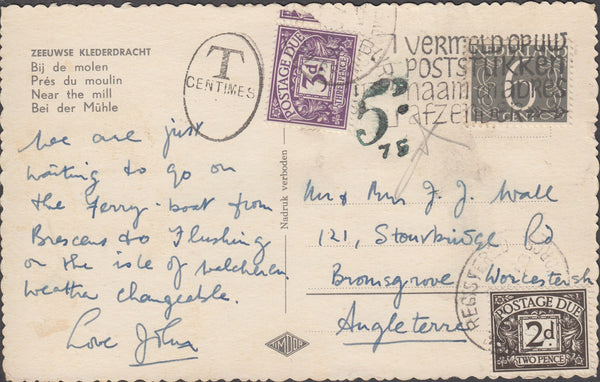 ZEEUWSE KLEDERDRACHT
Bij de molen
Prés du moulin
Near the mill
Bei der Mühle
T
CENTIMES
POSTAGE DUE
3d
THREE PENCE
5d
75
VERMELD OP UW
POSTSTUKKEN
naam en adres
afzender
6
CENT
We are just
waiting to go on
the Ferry-boat from
Brescens to Flushing
on the isle of Walcheren.
Weather changeable.
Love John
Nadruk verboden
Mr & Mrs J. J. Wall
121, Stourbridge Rd
Bromsgrove Worcestersh
Angleterre
REGISTERED
POSTAGE DUE
2d
TWO PENCE